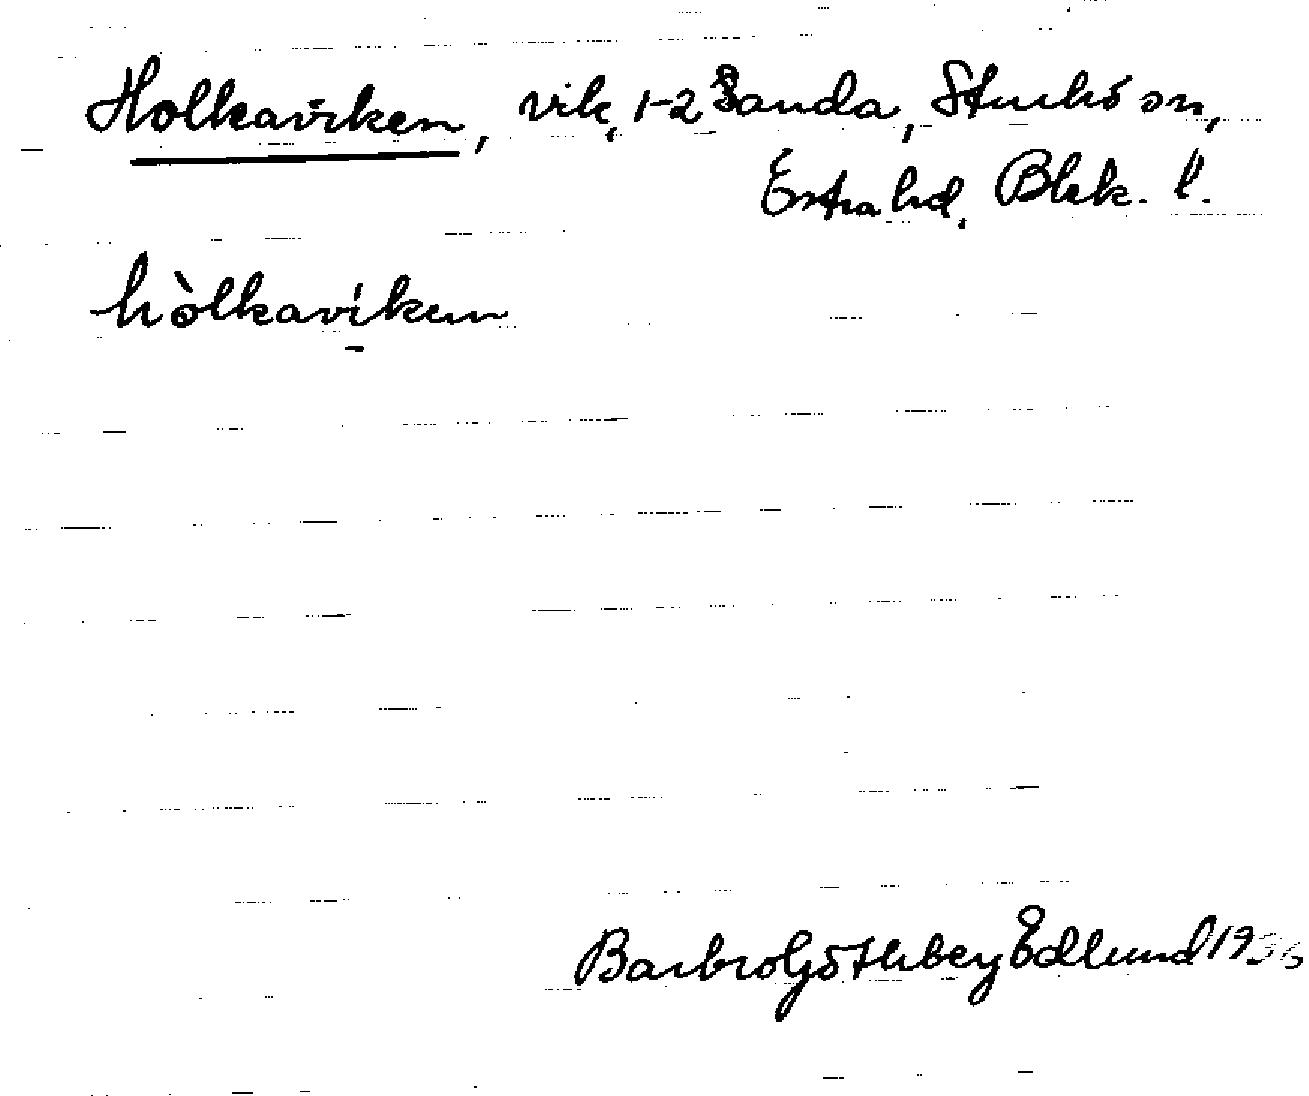 Holkaviken, vik, 1-2 Sanda, Sturkö sn,
Östra hd. Blek. l.
hòlkavíken
Barbro Götherberg Edlund 1936